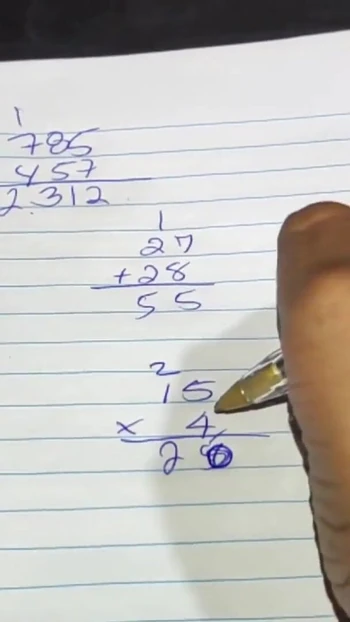 1
785
457
2312
1
27
+28
55
2
15
× 4
20